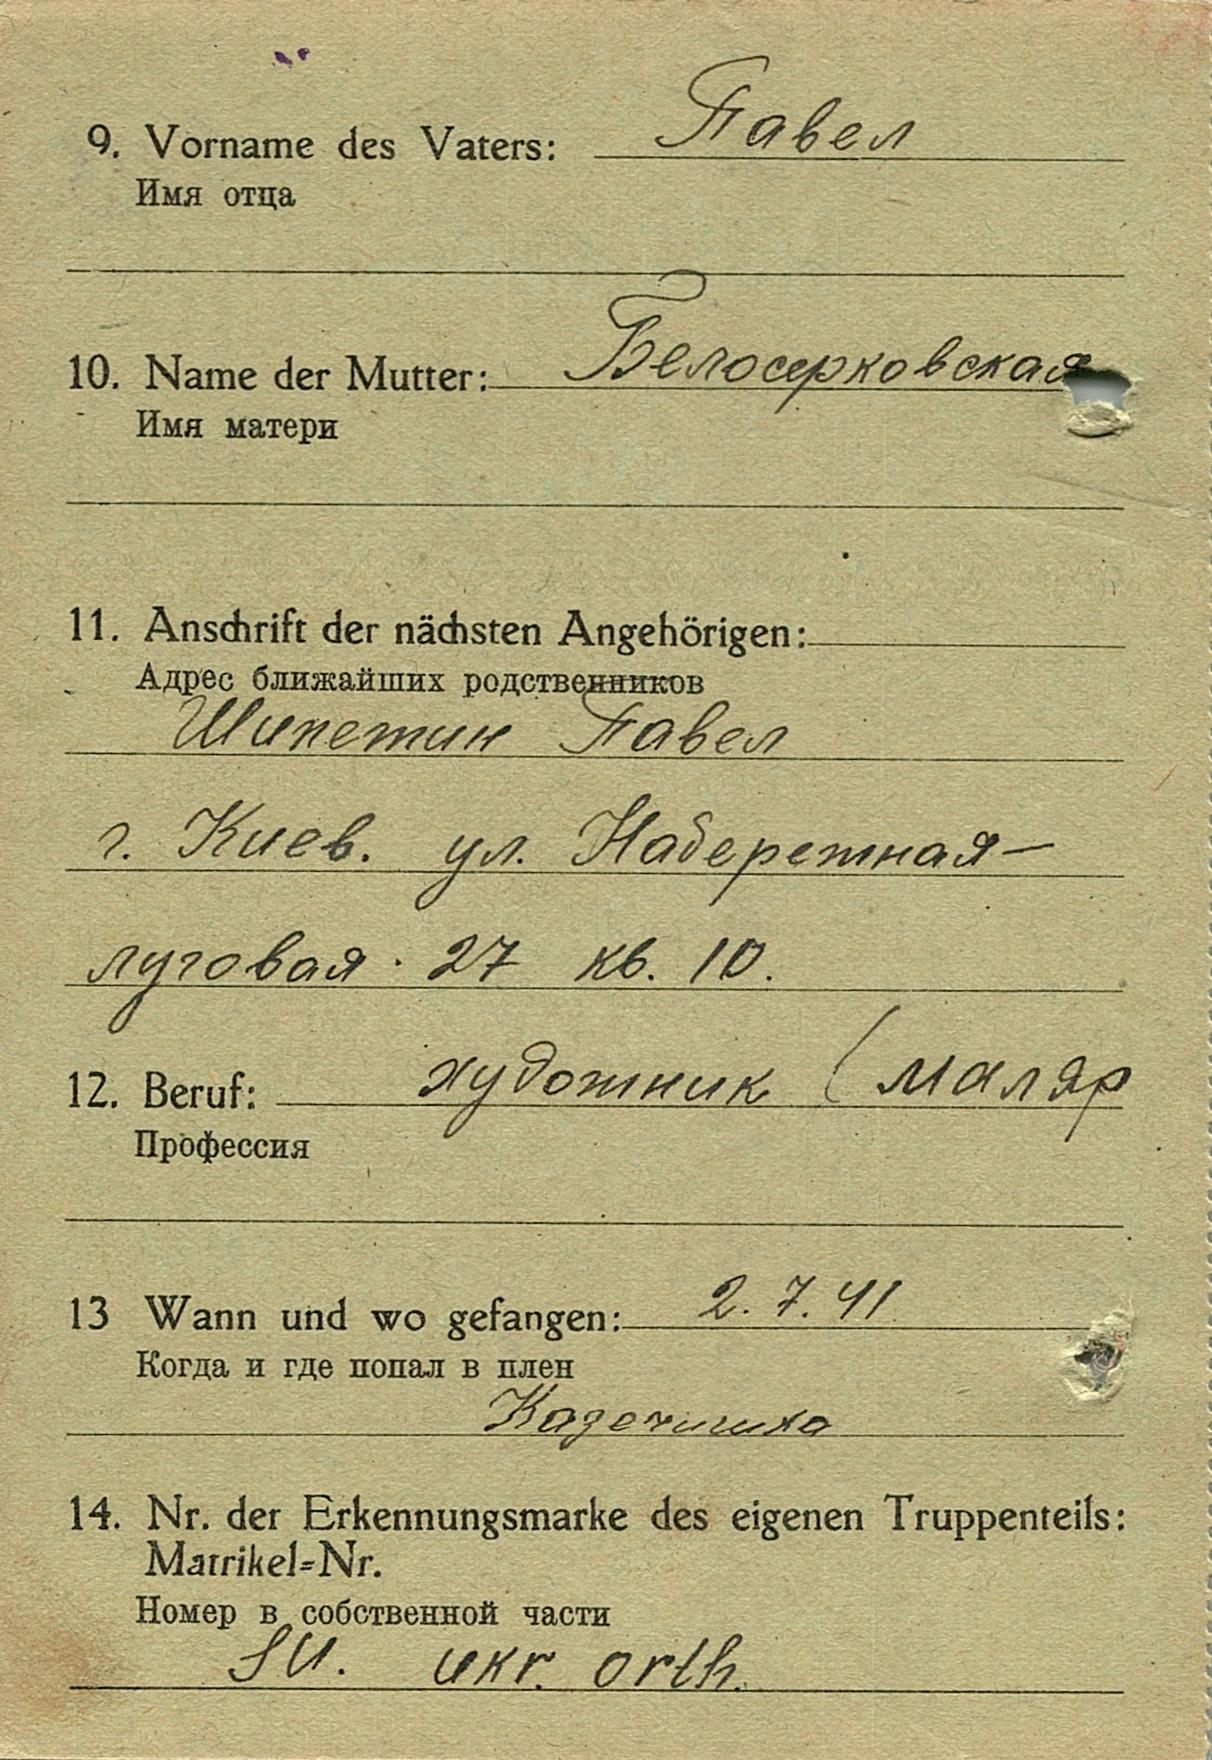 9. Vorname des Vaters: Павел
Имя отца
10. Name der Mutter: Белосерковская
Имя матери
11. Anschrift der nächsten Angehörigen:
Адрес ближайших родственников
Шипетин Павел
г. Киев. ул. Набережная–
луговая. 27 кв. 10.
12. Beruf: художник (маляр
Профессия
13 Wann und wo gefangen: 2. 7. 41
Когда и где попал в плен
14. Nr. der Erkennungsmarke des eigenen Truppenteils:
Matrikel=Nr.
Номер в собственной части
SU. ukr. orth.